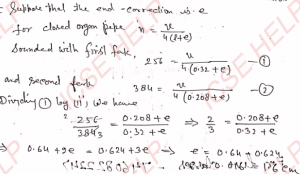 Suppose that the end-correction is e
for closed organ pipe n = v / 4(l+e)
sounded with first fork, 256 = v / 4(0.32+e) — ①
and second fork 384 = v / 4(0.208+e) — ②
Dividing ① by (ii) we have
256 / 384 = 0.208+e / 0.32+e ⇒ 2/3 = 0.208+e / 0.32+e
⇒ 0.64 + 2e = 0.624 + 3e ⇒ e = 0.64 - 0.624